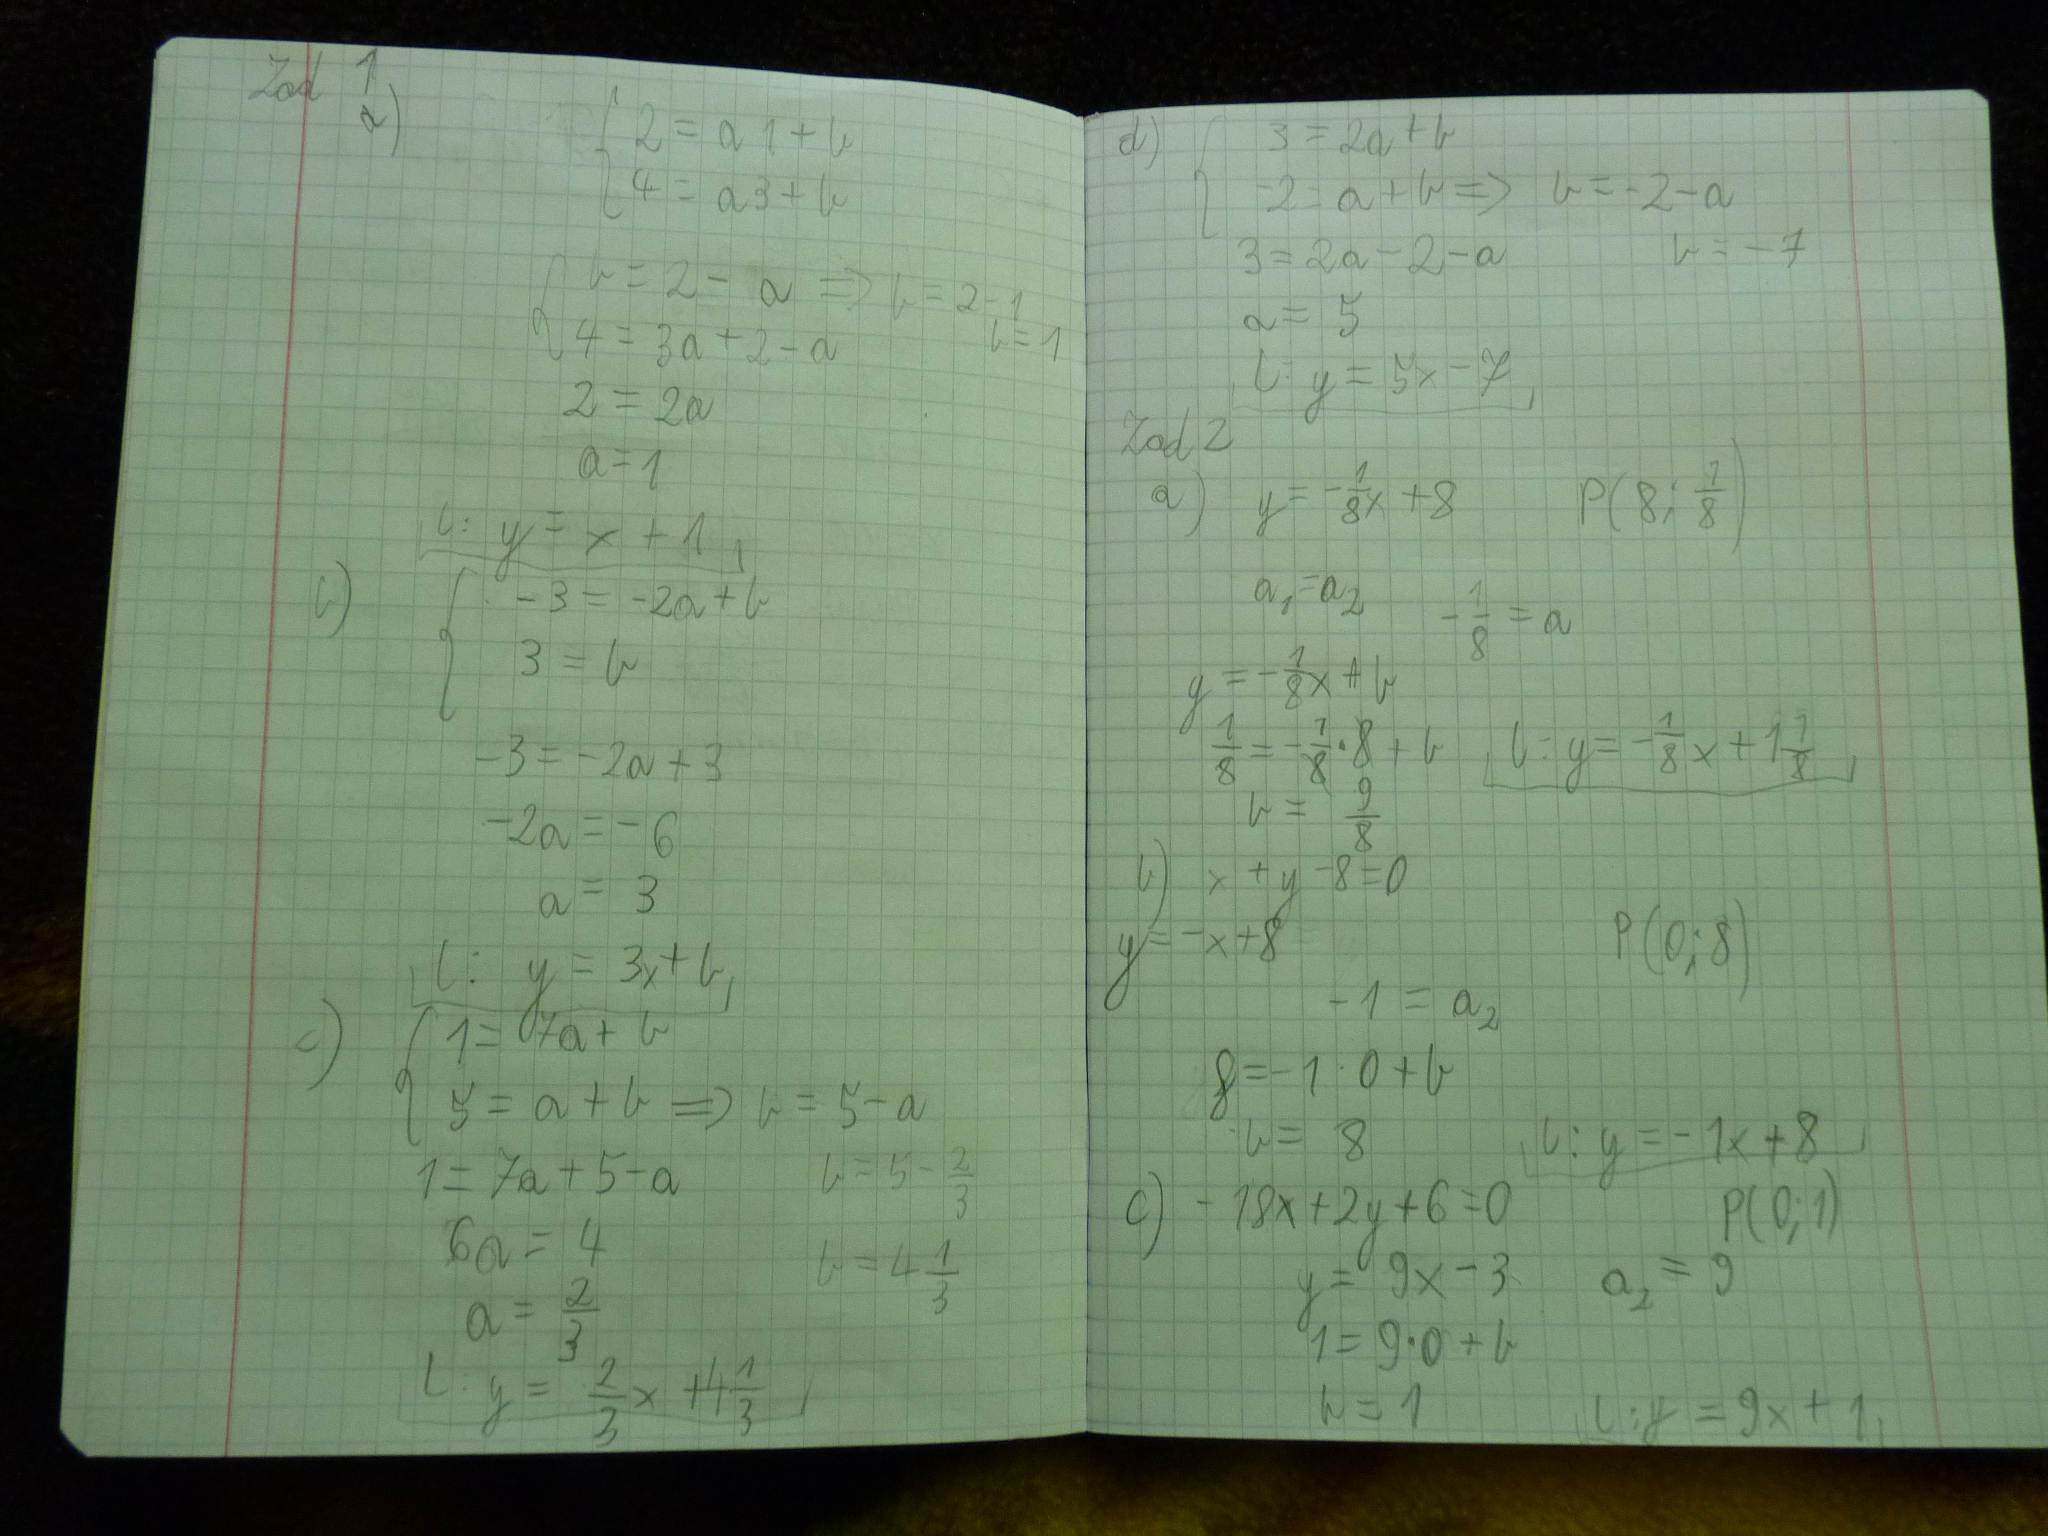 Zad 1
a)
{ 2 = a 1 + b
4 = a3 + b
{ b = 2 - a => b = 2-1
4 = 3a + 2 - a b = 1
2 = 2a
a = 1
l: y = x + 1
b) { -3 = -2a + b
3 = b
-3 = -2a + 3
-2a = -6
a = 3
l: y = 3x + b
c) { 1 = 7a + b
5 = a + b => b = 5 - a
1 = 7a + 5 - a b = 5 - 2/3
6a = 4 b = 4 1/3
a = 2/3
l: y = 2/3 x + 4 1/3
d) { 3 = 2a + b
-2 = a + b => b = -2 - a
3 = 2a - 2 - a b = -7
a = 5
l: y = 5x - 7
Zad 2
a) y = -1/8 x + 8 P(8; 1/8)
a1 = a2 -1/8 = a
y = -1/8 x + b
1/8 = -1/8 · 8 + b l: y = -1/8 x + 1 1/8
b = 9/8
b) x + y - 8 = 0
y = -x + 8 P(0; 8)
-1 = a2
8 = -1 · 0 + b
b = 8 l: y = -1x + 8
c) -18x + 2y + 6 = 0 P(0; 1)
y = 9x - 3 a2 = 9
1 = 9 · 0 + b
b = 1 l: y = 9x + 1